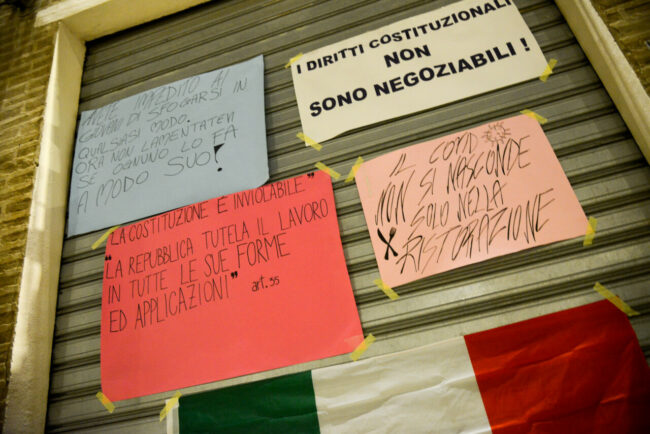 I DIRITTI COSTITUZIONALI
NON
SONO NEGOZIABILI !
AVETE IMPEDITO AI
GIOVANI DI SFOGARSI IN
QUALSIASI MODO.
ORA NON LAMENTATEVI
SE OGNUNO LO FA
A MODO SUO!
IL COVID
NON SI NASCONDE
SOLO NELLA
RISTORAZIONE
"LA COSTITUZIONE È INVIOLABILE"
"LA REPUBBLICA TUTELA IL LAVORO
IN TUTTE LE SUE FORME
ED APPLICAZIONI" art. 35